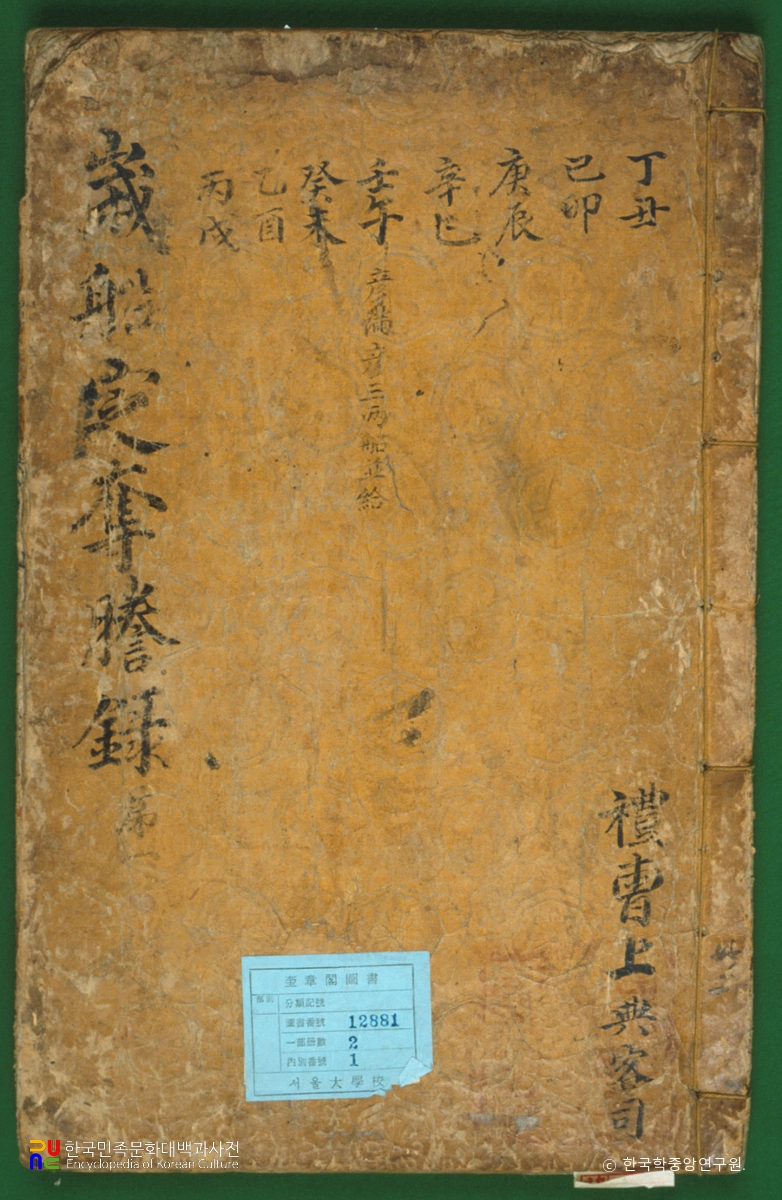 丁丑
己卯
庚辰
辛巳
壬午
癸未
乙酉
丙戌
三
船
給
歲船定奪謄錄
第一
禮曹上
典客司
奎章閣圖書
分類記號
圖書番號 12881
一部冊數 2
內別番號 1
서울大學校
한국민족문화대백과사전
Encyclopedia of Korean Culture
© 한국학중앙연구원.